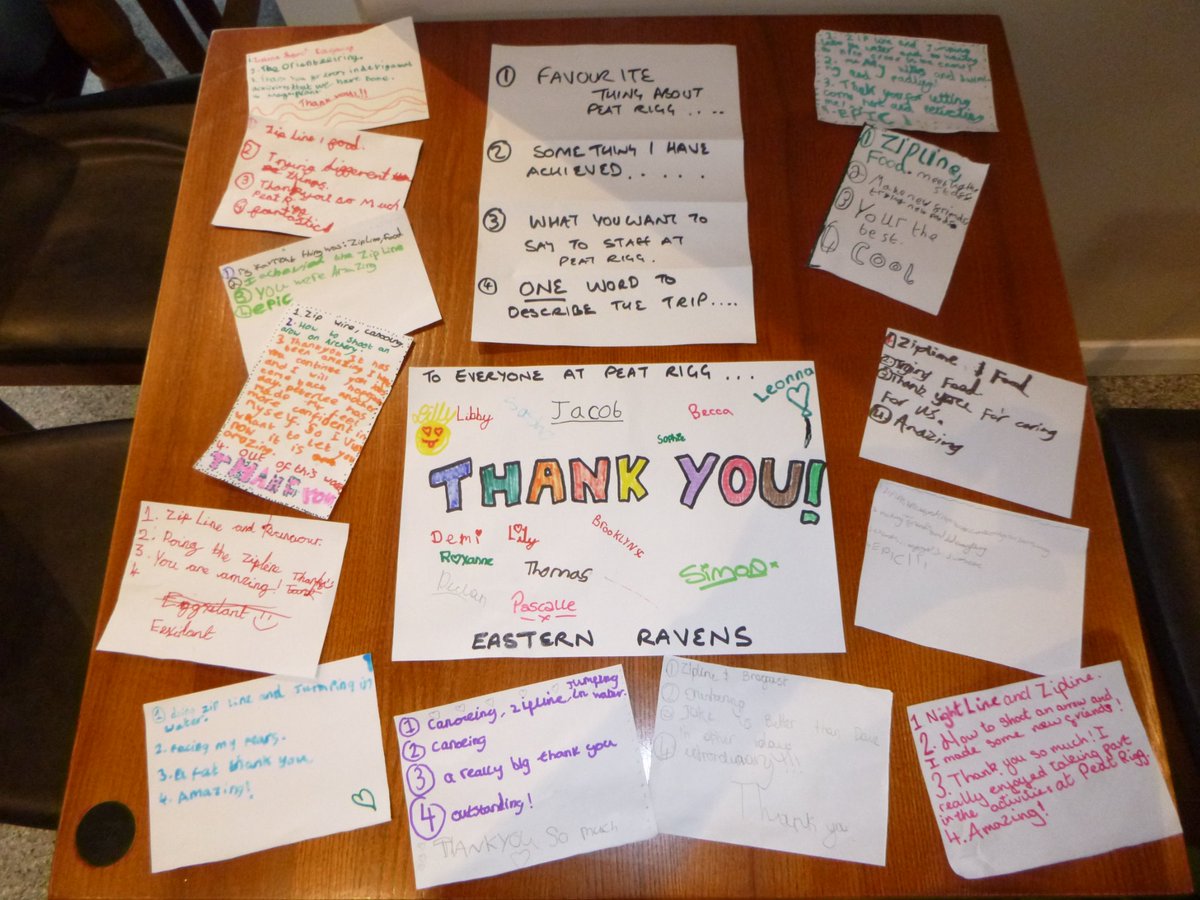 2. The Orienteering.
Thank you!!!
Zip Line, good.
2 Trying different
things.
3 Thank you so much
Peat Rigg
4 fantastic
1 my favrout thing was: Zip Line, Food
2 I achieved the Zip Line
3 You were Amazing
4 epic
1. Zip wire, canoeing
2. How to shoot an
arrow on Archery.
3. Thankyou It has
been amazing I hope
you continue your job
and I will
come back another
made me
more confident in
myself. So I
want to let you
now it is
amazing.
4. out of this world
THANK YOU
1. Zip Line and
2. Doing the Ziplere
3. You are amzing! Thanks
4
Eggselant
Eexsitant
1 doing zip Line and Jumping in
water.
2. Facing my fears.
3. a fat thank you
4. Amazing!
① FAVOURITE
THING ABOUT
PEAT RIGG ....
② SOMETHING I HAVE
ACHIEVED......
③ WHAT YOU WANT TO
SAY TO STAFF AT
PEAT RIGG.
④ ONE WORD TO
DESCRIBE THE TRIP....
TO EVERYONE AT PEAT RIGG ...
Lilly Libby Jacob Becca Leonna
Sophie
THANK YOU!
Demi Lily Brooklyn SC
Roxanne Thomas Simon
Declan
Pascalle
EASTERN RAVENS
① Canoeing, zipline, Jumping in water.
② canoeing
③ a really big thank you
④ outstanding!
THANKYOU So much
① Zipline & Breguast
②
③ Jake is Better than Dave
in other
④ extrordinary!!!
Thank you
1. Zip wire and Jumping
3. Thank you for letting
4. EPIC!
① Zipline,
Food. meeting the
staff
② Make new friends
③ Your the
best.
④ Cool
① Zipline & Food
② Trying Food
③ Thank you for caring
For us.
④ Amazing
EPIC!!!
1 Night Line and Zipline.
2. How to shoot an arrow and
I made some new friends!
3. Thank you so much! I
really enjoyed taking part
in the activities at Peat Rigg.
4. Amazing!